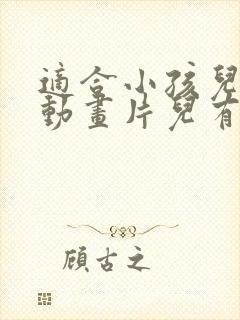 適合小孩兒
動畫片兒有
顧古之